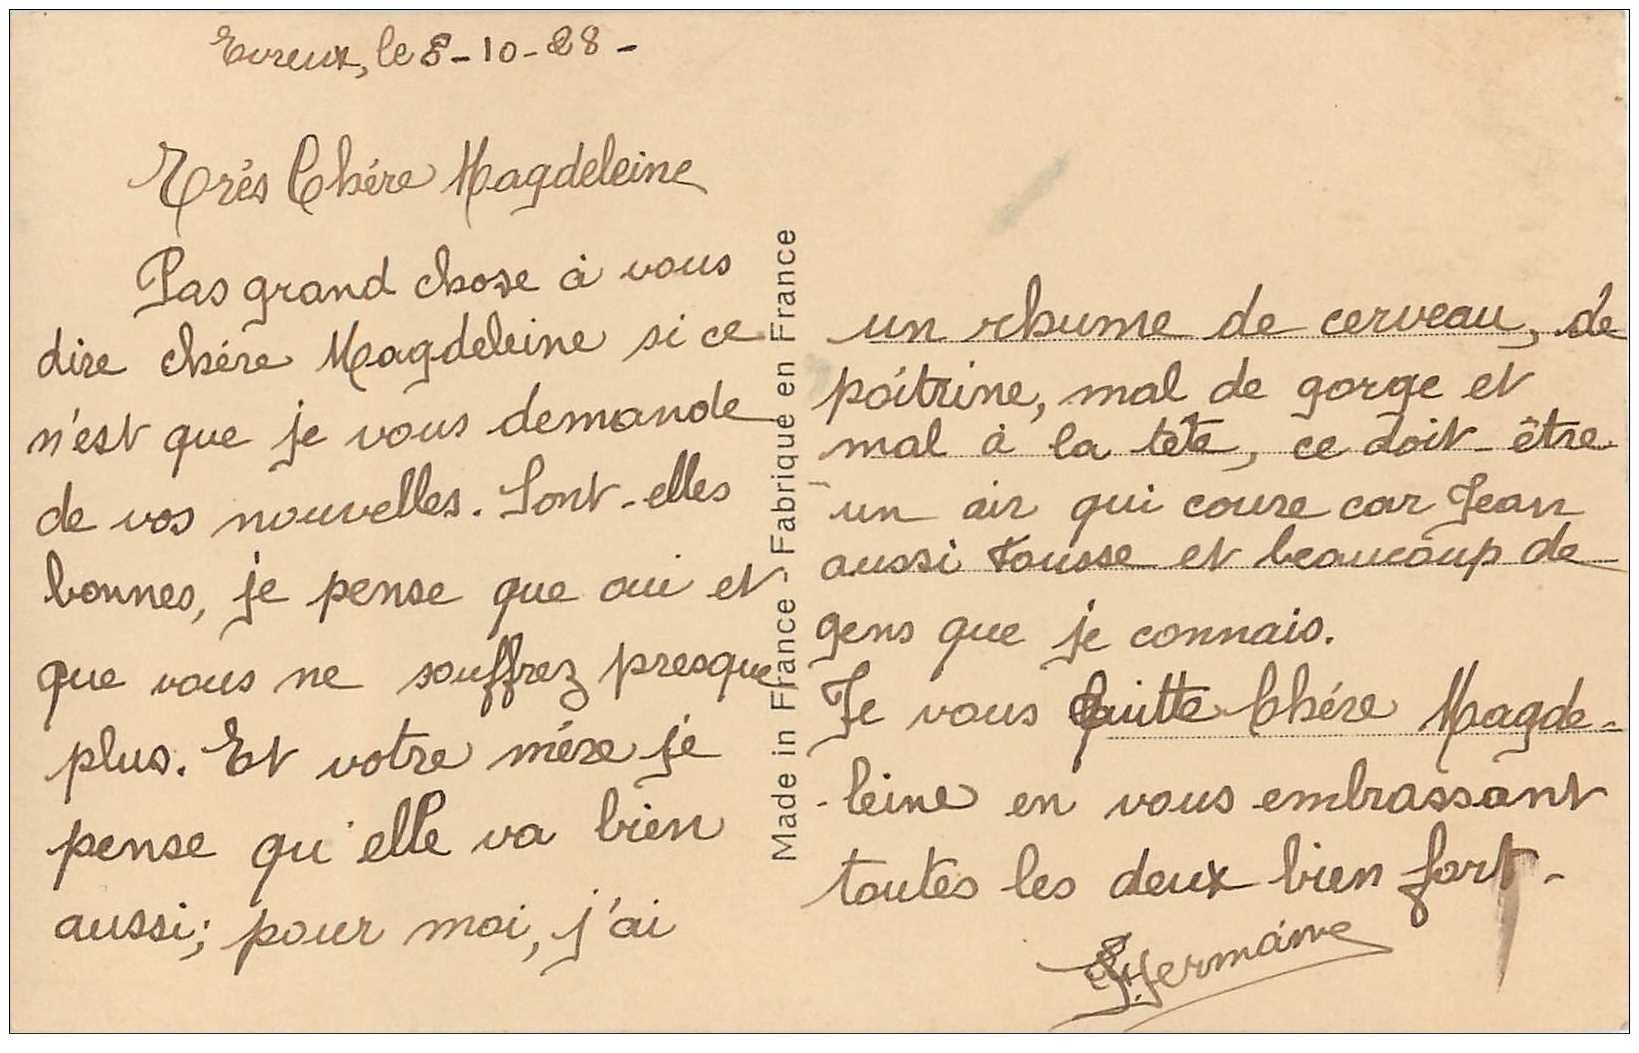 Evreux, le 8-10-28-
Trés Chére Magdeleine
Pas grand chose à vous
dire chére Magdeleine si ce
n'est que je vous demande
de vos nouvelles. Sont-elles
bonnes, je pense que oui et
que vous ne souffrez presque
plus. Et votre mére je
pense qu'elle va bien
aussi; pour moi, j'ai
Made in France - Fabrique en France
un rhume de cerveau, de
poitrine, mal de gorge et
mal à la tete, ce doit-être
un air qui coure car Jean
aussi tousse et beaucoup de
gens que je connais.
Je vous quitte Chére Magde-
-leine en vous embrassant
toutes les deux bien fort-
Germaine